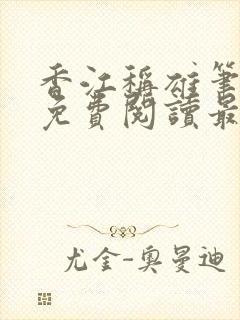 香江稱雄筆
免費閱讀最
尤金-奧曼迪